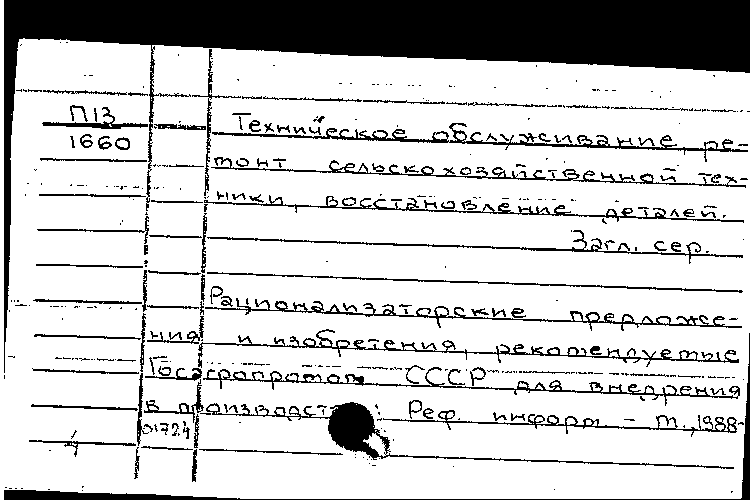 П13
1660
Техническое обслуживание, ре-
монт сельскохозяйственной тех-
ники, восстановление деталей.
Загл. сер.
Рационализаторские предложе-
ния и изобретения, рекомендуемые
Госагропромом СССР для внедрения
в производст : Реф. информ. - М., 1988-
01724
4